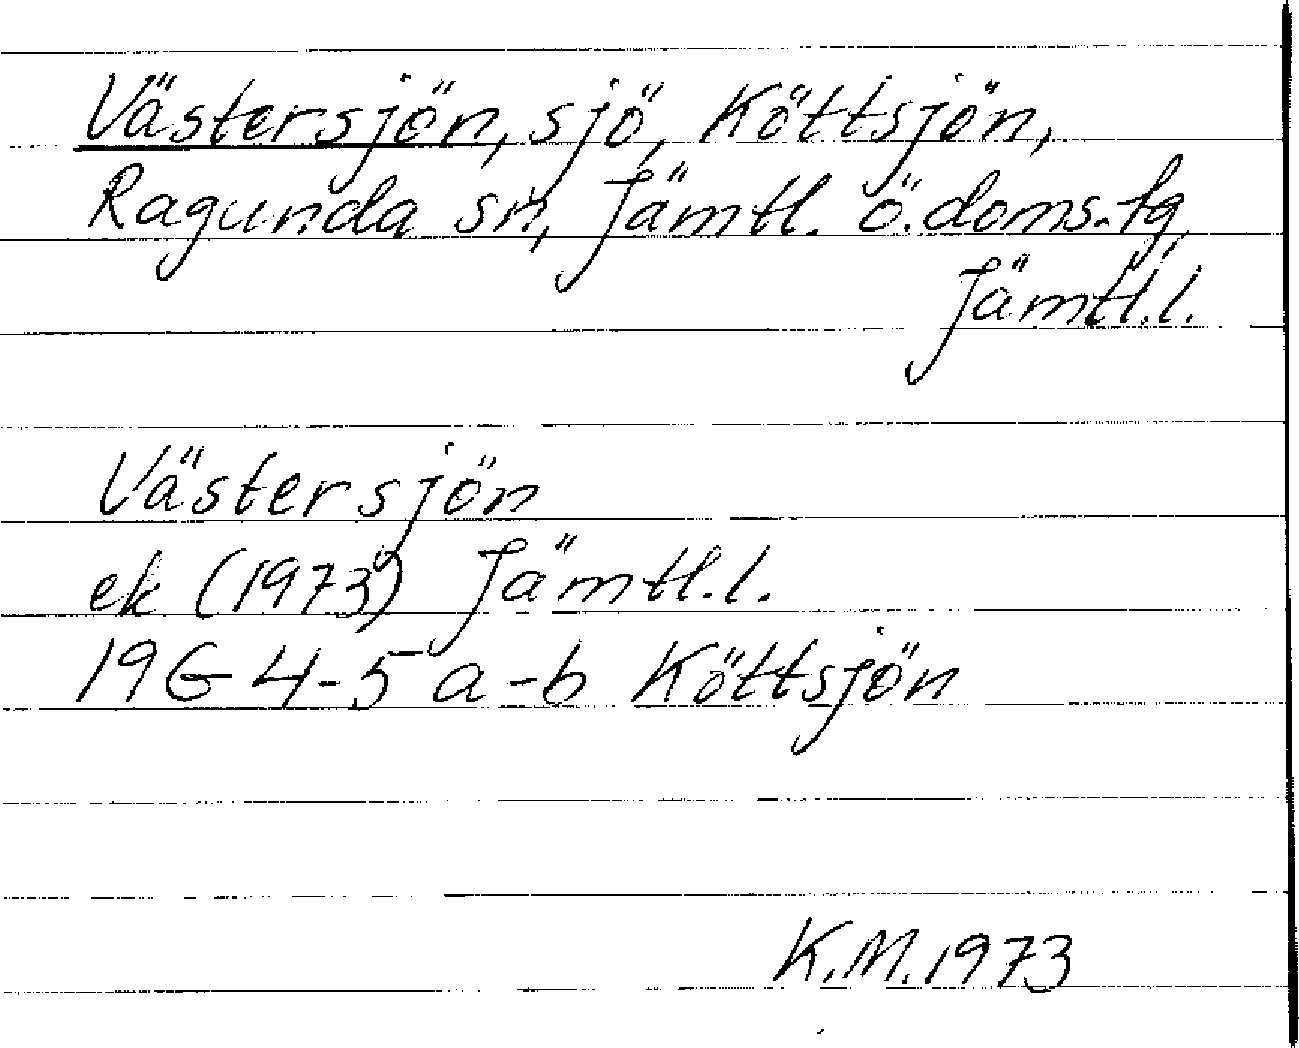 Västersjön, sjö, Köttsjön,
Ragunda sn, Jämtl. ö. doms.-fg,
Jämtl.l.
Västersjön
ek (1973) Jämtl.l.
19 G 4-5 a-b Köttsjön
K.M. 1973